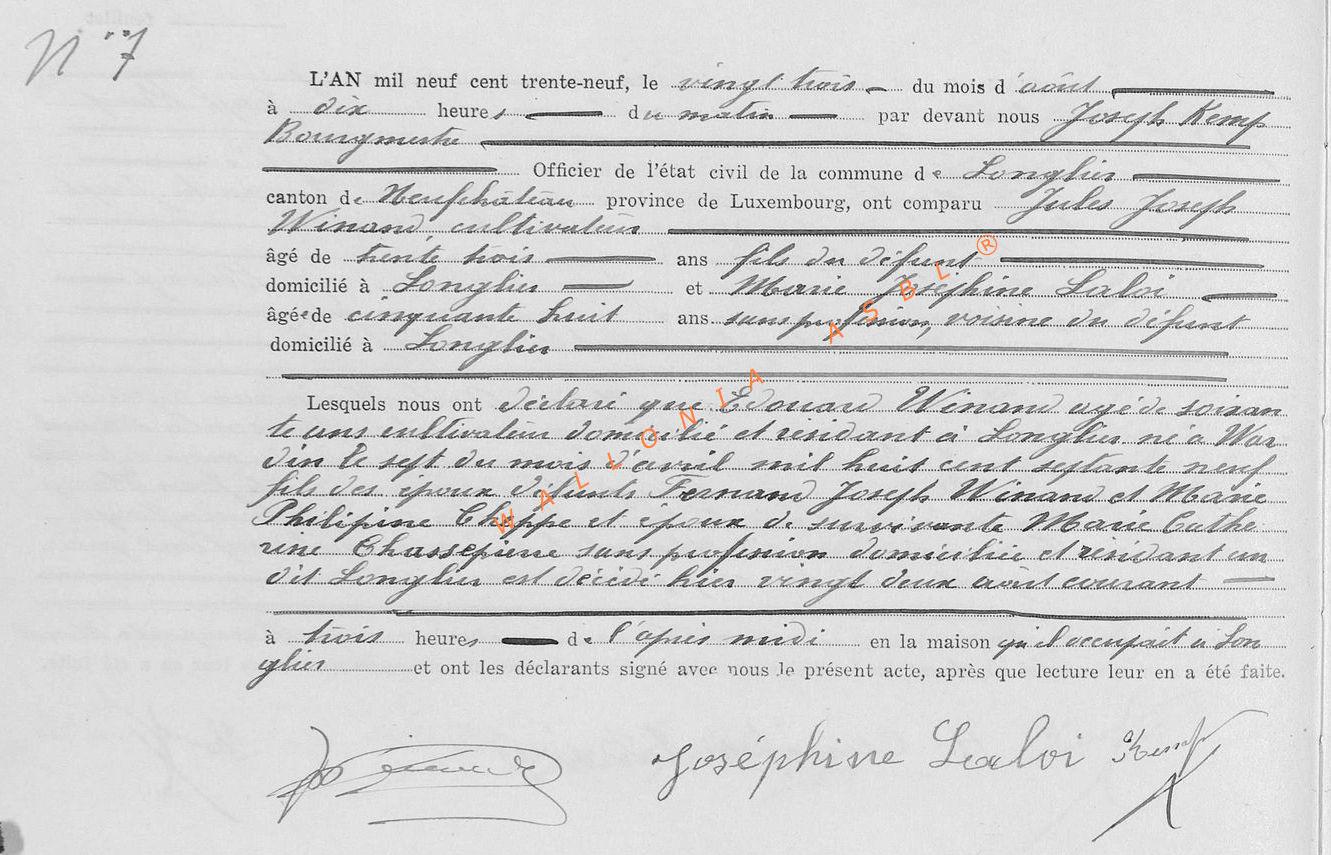 N° 7
L'AN mil neuf cent trente-neuf, le vingt trois du mois d'août
à dix heures du matin par devant nous Joseph Kemp
Bourgmestre
Officier de l'état civil de la commune de Longlier
canton de Neufchâteau province de Luxembourg, ont comparu Jules Joseph
Winand cultivateur
âgé de trente trois ans fils du défunt
domicilié à Longlier et Marie Joséphine Laloi
âgée de cinquante huit ans sans profession, voisine du défunt
domicilié à Longlier
Lesquels nous ont déclaré que Edouard Winand agé de soixan
te ans cultivateur domicilié et résidant à Longlier né à War
din le sept du mois d'avril mil huit cent septante neuf
fils des époux défunts Fernand Joseph Winand et Marie
Philipine Choppe et époux de survivante Marie Cathe
rine Chassepierre sans profession domiciliée et résidant au
dit Longlier est décédé hier vingt deux août courant
à trois heures de l'après midi en la maison qu'il occupait à Lon
glier et ont les déclarants signé avec nous le présent acte, après que lecture leur en a été faite.
Joséphine Laloi Kemp
WALLONIA ASBL ®